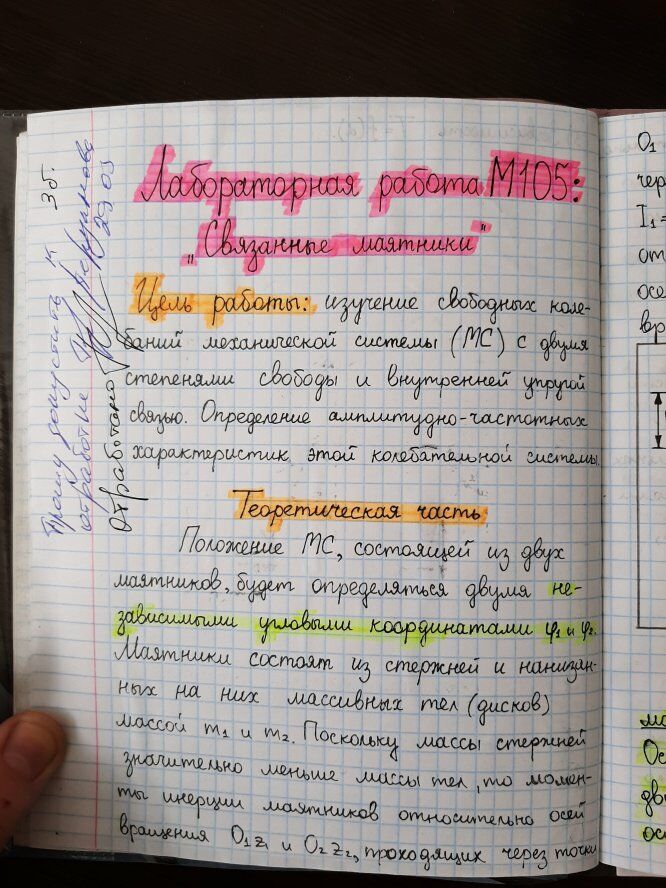 Лабораторная работа М105:
„Связанные маятники"
Цель работы: изучение свободных коле-
баний механической системы (МС) с двумя
степенями свободы и внутренней упругой
связью. Определение амплитудно-частотных
характеристик этой колебательной системы.
Теоретическая часть
Положение МС, состоящей из двух
маятников, будет определяться двумя не-
зависимыми угловыми координатами φ1 и φ2.
Маятники состоят из стержней и нанизан-
ных на них массивных тел (дисков)
массой m1 и m2. Поскольку массы стержней
значительно меньше массы тел, то момен-
ты инерции маятников относительно осей
вращения O1z1 и O2z2, проходящих через точки
Прошу допустить к
отработке
29.03
Отработано
3б.
O1
чер
I1=
от
осе
вр
мо
Ос
дви
осн